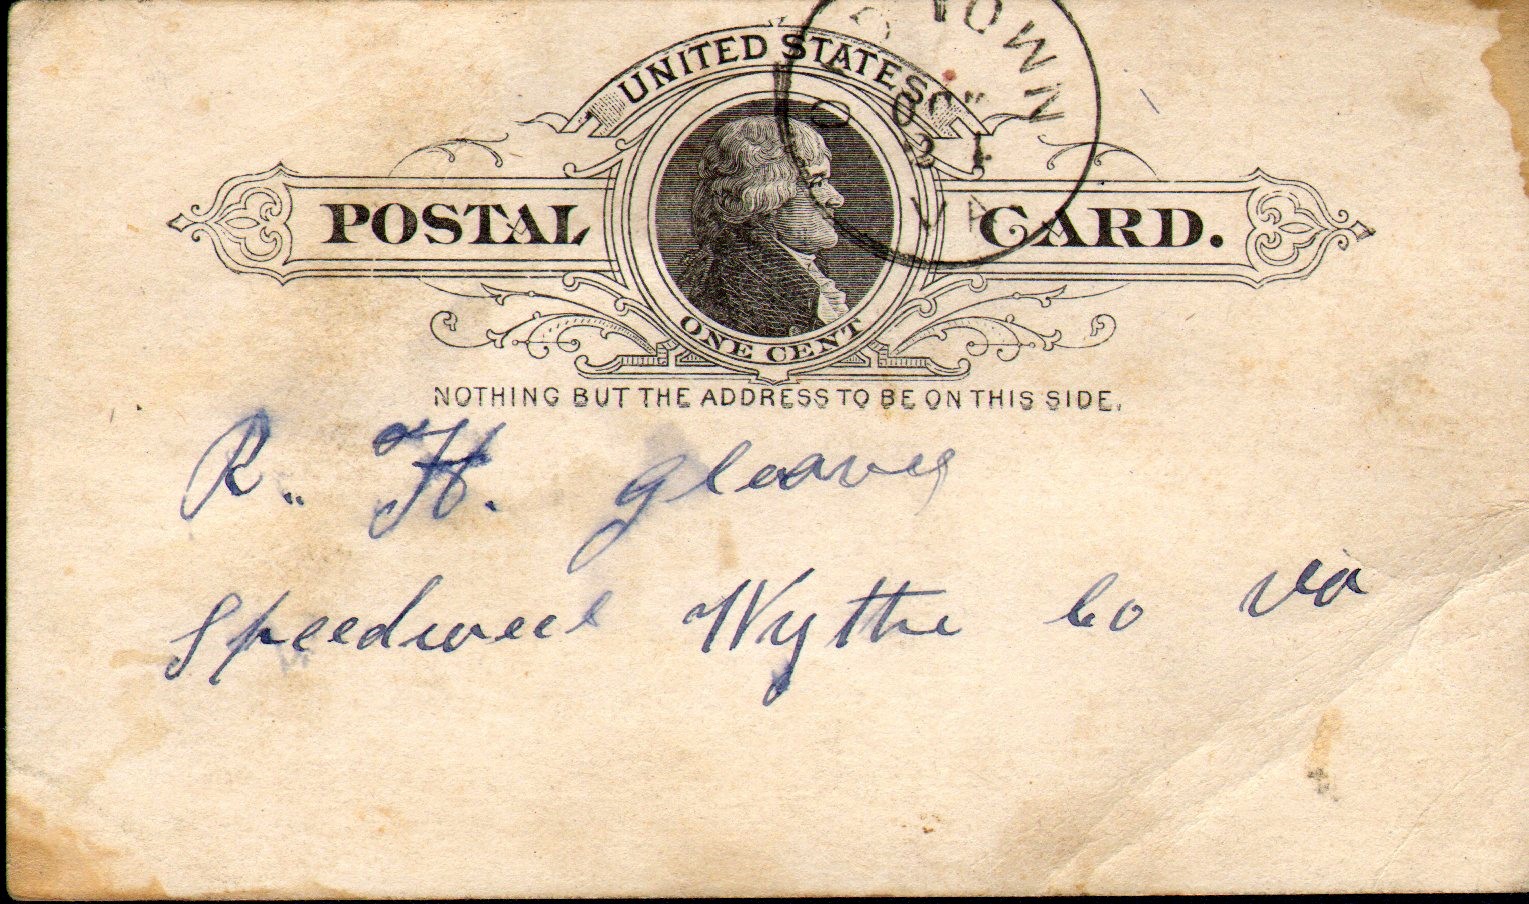 UNITED STATES
POSTAL CARD.
ONE CENT
NOTHING BUT THE ADDRESS TO BE ON THIS SIDE.
R. H. Gleaves
Speedwell Wythe Co Va
TOWN
VA